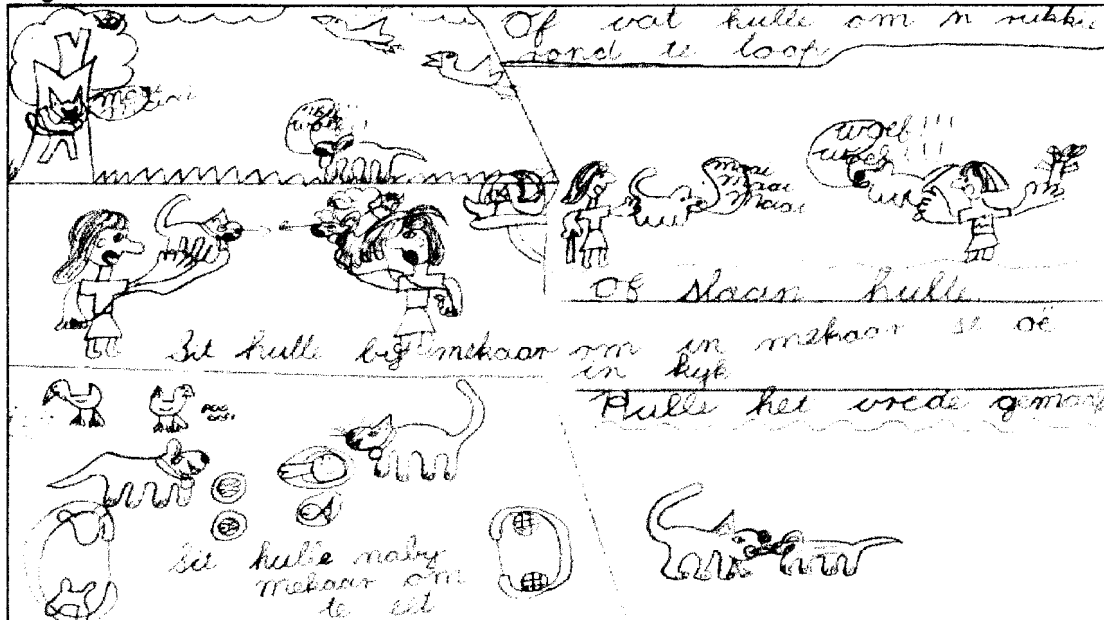 Of vat hulle om n rukkie
rond te loop
miau
woef!!
woef!!!
woef!!!
miau
miau
miau
Of slaan hulle
Sit hulle by mekaar om in mekaar se oë
in kyk
Hulle het vrede gemaak
Sit hulle naby
mekaar om
te eet